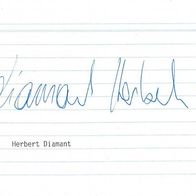 Diamant Herbert
Herbert Diamant